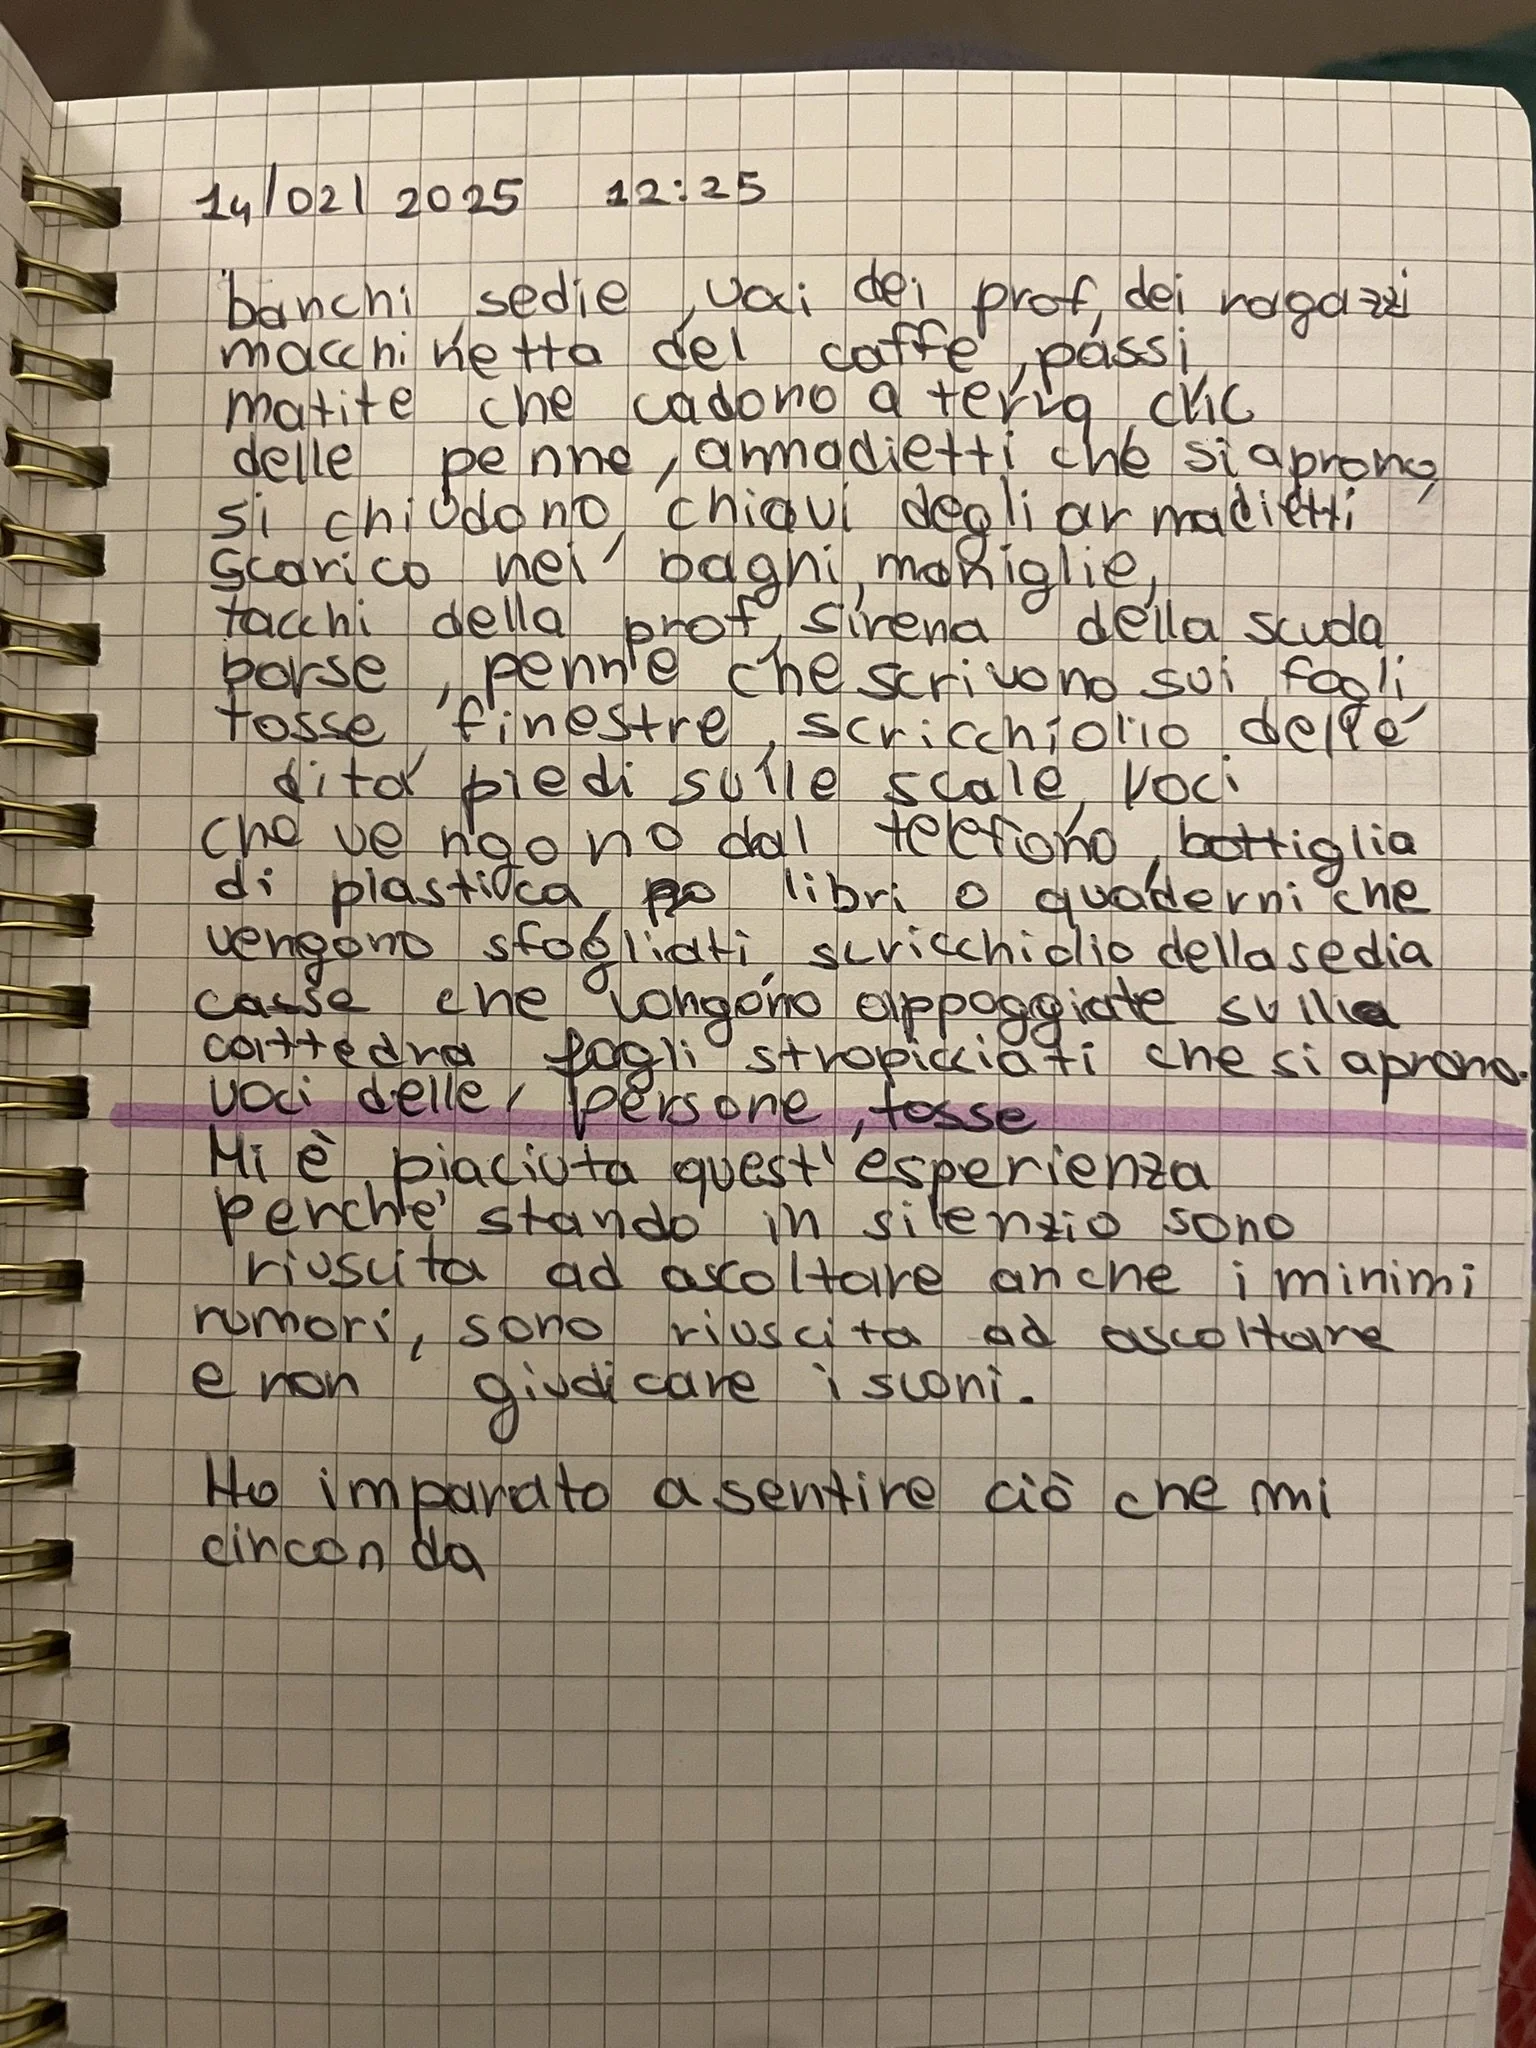 14/02/2025 12:25
banchi, sedie, voci dei prof, dei ragazzi
macchinetta del caffe, passi,
matite che cadono a terra, clic
delle penne, armadietti che si aprono,
si chiudono, chiavi degli armadietti
scarico nei bagni, maniglie,
tacchi della prof, sirena della scuola
borse, penne che scrivono sui fogli,
tosse, finestre, scricchiolio delle
dita, piedi sulle scale, voci
che vengono dal telefono, bottiglia
di plastica, libri o quaderni che
vengono sfogliati, scricchiolio della sedia
che vengono appoggiate sulla
cattedra fogli stropicciati che si aprono.
voci delle persone, tosse
Mi è piaciuta quest'esperienza
perche' stando in silenzio sono
riuscita ad ascoltare anche i minimi
rumori, sono riuscita ad ascoltare
e non giudicare i suoni.
Ho imparato a sentire ciò che mi
circonda